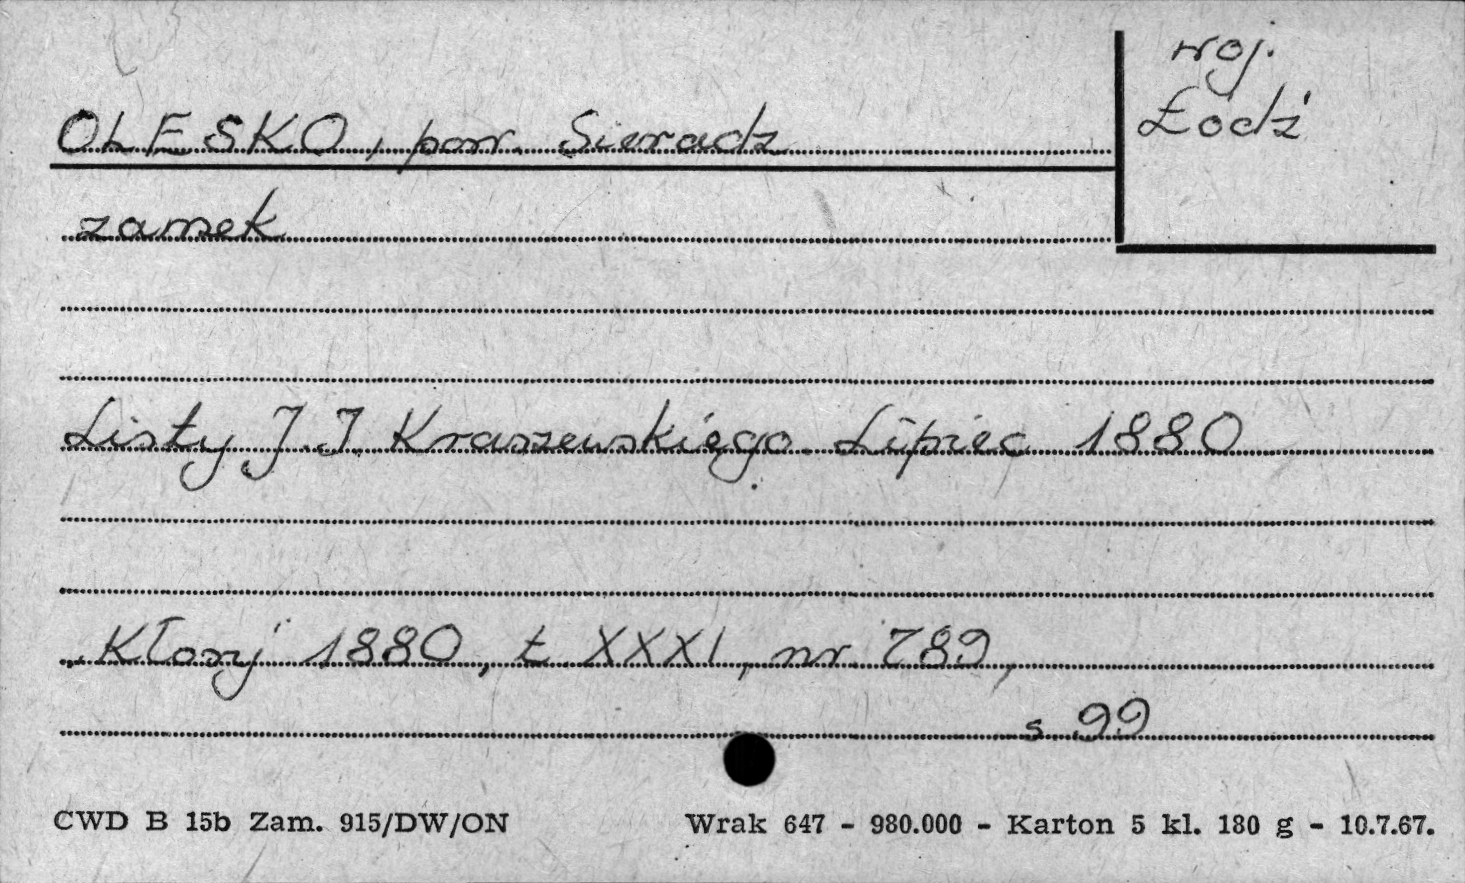 woj.
Łódź
OLESKO, pow. Sieradz
zamek
Listy J. I. Kraszewskiego. Lipiec 1880
"Kłosy" 1880, t. XXXI, nr. 789,
s. 99
CWD B 15b Zam. 915/DW/ON
Wrak 647 - 980.000 - Karton 5 kl. 180 g - 10.7.67.